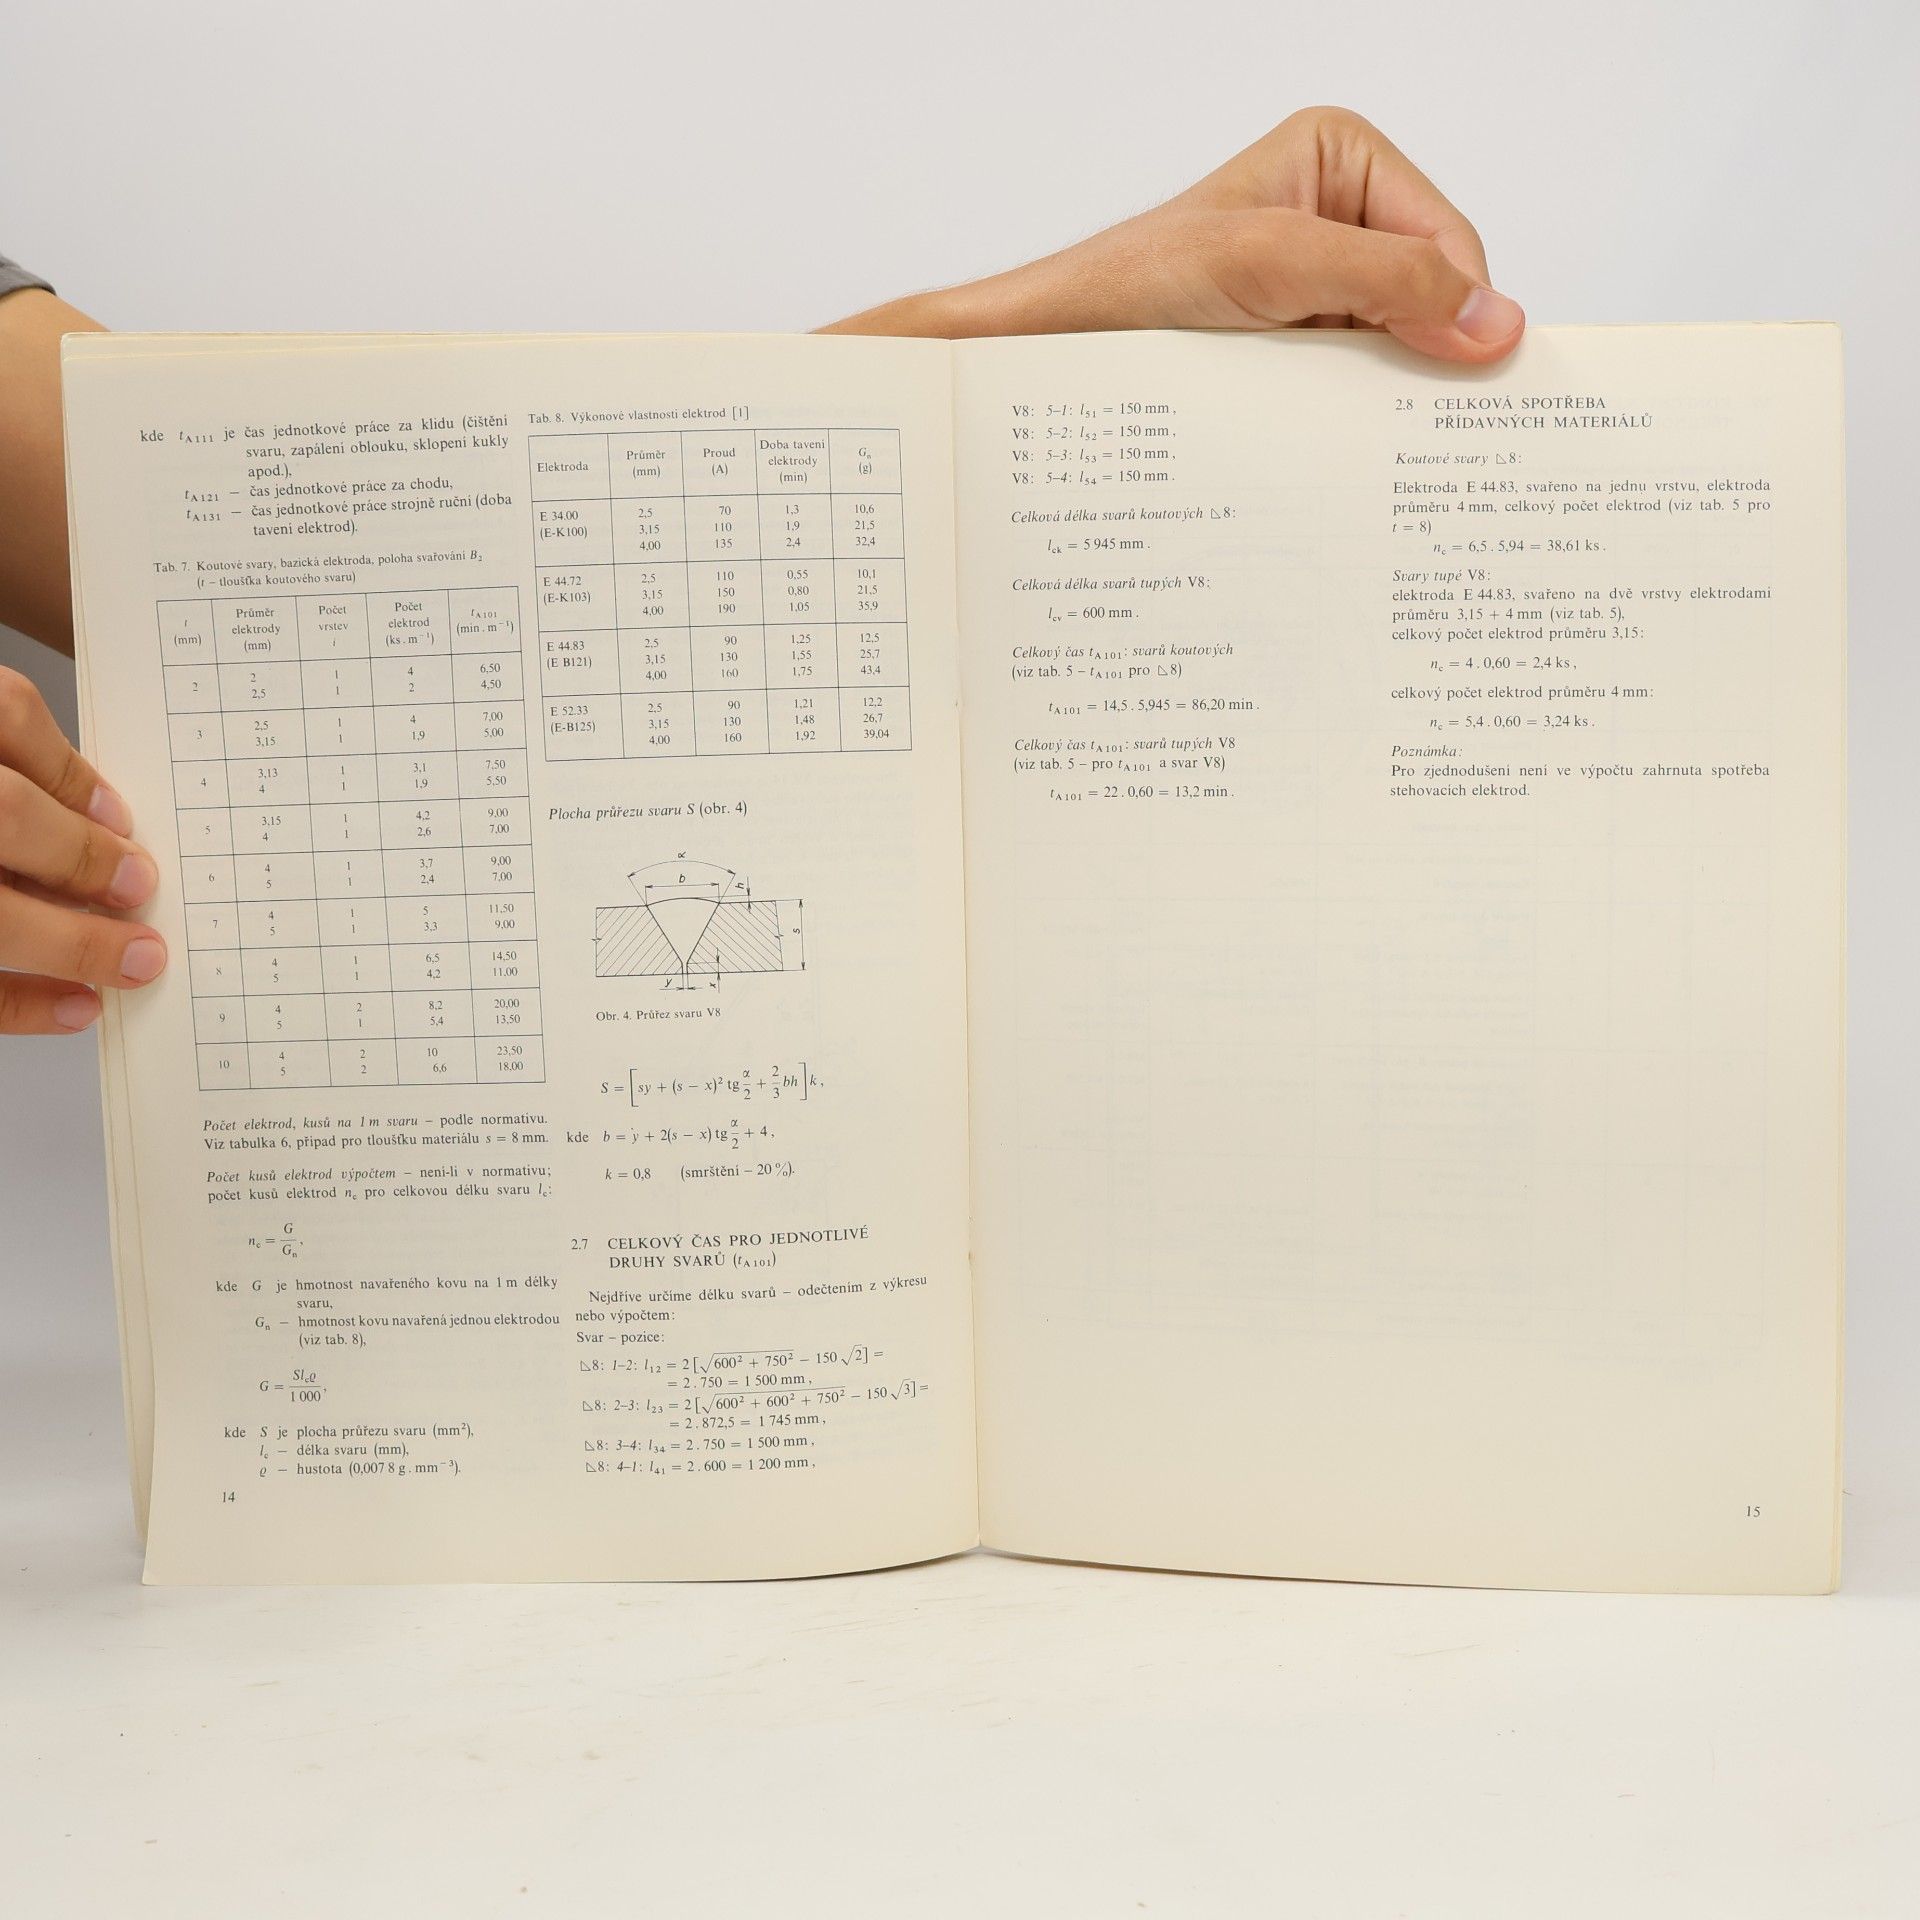 kde t_A111 je čas jednotkové práce za klidu (čištění
svaru, zapálení oblouku, sklopení kukly
apod.),
t_A121 – čas jednotkové práce za chodu,
t_A131 – čas jednotkové práce strojně ruční (doba
tavení elektrod).
Tab. 7. Koutové svary, bazická elektroda, poloha svařování B₂
(t – tloušťka koutového svaru)
t (mm) | Průměr elektrody (mm) | Počet vrstev i | Počet elektrod (ks . m⁻¹) | t_A101 (min . m⁻¹)
2 | 2 | 1 | 4 | 6,50
2,5 | 1 | 2 | 4,50
3 | 2,5 | 1 | 4 | 7,00
3,15 | 1 | 1,9 | 5,00
4 | 3,13 | 1 | 3,1 | 7,50
4 | 1 | 1,9 | 5,50
5 | 3,15 | 1 | 4,2 | 9,00
4 | 1 | 2,6 | 7,00
6 | 4 | 1 | 3,7 | 9,00
5 | 1 | 2,4 | 7,00
7 | 4 | 1 | 5 | 11,50
5 | 1 | 3,3 | 9,00
8 | 4 | 1 | 6,5 | 14,50
5 | 1 | 4,2 | 11,00
9 | 4 | 2 | 8,2 | 20,00
5 | 1 | 5,4 | 13,50
10 | 4 | 2 | 10 | 23,50
5 | 2 | 6,6 | 18,00
Počet elektrod, kusů na 1 m svaru – podle normativu.
Viz tabulka 6, případ pro tloušťku materiálu s = 8 mm.
Počet kusů elektrod výpočtem – není-li v normativu;
počet kusů elektrod n_c pro celkovou délku svaru l_c:
n_c = G/G_n,
kde G je hmotnost navařeného kovu na 1 m délky
svaru,
G_n – hmotnost kovu navařená jednou elektrodou
(viz tab. 8),
G = Sl_cϱ/1 000,
kde S je plocha průřezu svaru (mm²),
l_c – délka svaru (mm),
ϱ – hustota (0,007 8 g . mm⁻³).
14
Tab. 8. Výkonové vlastnosti elektrod [1]
Elektroda | Průměr (mm) | Proud (A) | Doba tavení elektrody (min) | G_n (g)
E 34.00 | 2,5 | 70 | 1,3 | 10,6
(E-K100) | 3,15 | 110 | 1,9 | 21,5
4,00 | 135 | 2,4 | 32,4
E 44.72 | 2,5 | 110 | 0,55 | 10,1
(E-K103) | 3,15 | 150 | 0,80 | 21,5
4,00 | 190 | 1,05 | 35,9
E 44.83 | 2,5 | 90 | 1,25 | 12,5
(E B121) | 3,15 | 130 | 1,55 | 25,7
4,00 | 160 | 1,75 | 43,4
E 52.33 | 2,5 | 90 | 1,21 | 12,2
(E-B125) | 3,15 | 130 | 1,48 | 26,7
4,00 | 160 | 1,92 | 39,04
Plocha průřezu svaru S (obr. 4)
α
b
h
s
y
x
Obr. 4. Průřez svaru V8
S = [sy + (s − x)² tg α/2 + 2/3 bh] k,
kde b = y + 2(s − x) tg α/2 + 4,
k = 0,8 (smrštění – 20 %).
2.7 CELKOVÝ ČAS PRO JEDNOTLIVÉ
DRUHY SVARŮ (t_A101)
Nejdříve určíme délku svarů – odečtením z výkresu
nebo výpočtem:
Svar – pozice:
◺8: 1–2: l₁₂ = 2 [√(600² + 750²) − 150 √2] =
= 2 . 750 = 1 500 mm,
◺8: 2–3: l₂₃ = 2 [√(600² + 600² + 750²) − 150 √3] =
= 2 . 872,5 = 1 745 mm,
◺8: 3–4: l₃₄ = 2 . 750 = 1 500 mm,
◺8: 4–1: l₄₁ = 2 . 600 = 1 200 mm,
V8: 5–1: l₅₁ = 150 mm,
V8: 5–2: l₅₂ = 150 mm,
V8: 5–3: l₅₃ = 150 mm,
V8: 5–4: l₅₄ = 150 mm.
Celková délka svarů koutových ◺8:
l_ck = 5 945 mm.
Celková délka svarů tupých V8:
l_cv = 600 mm.
Celkový čas t_A101: svarů koutových
(viz tab. 5 – t_A101 pro ◺8)
t_A101 = 14,5 . 5,945 = 86,20 min.
Celkový čas t_A101: svarů tupých V8
(viz tab. 5 – pro t_A101 a svar V8)
t_A101 = 22 . 0,60 = 13,2 min.
2.8 CELKOVÁ SPOTŘEBA
PŘÍDAVNÝCH MATERIÁLŮ
Koutové svary ◺8:
Elektroda E 44.83, svařeno na jednu vrstvu, elektroda
průměru 4 mm, celkový počet elektrod (viz tab. 5 pro
t = 8)
n_c = 6,5 . 5,94 = 38,61 ks.
Svary tupé V8:
elektroda E 44.83, svařeno na dvě vrstvy elektrodami
průměru 3,15 + 4 mm (viz tab. 5),
celkový počet elektrod průměru 3,15:
n_c = 4 . 0,60 = 2,4 ks,
celkový počet elektrod průměru 4 mm:
n_c = 5,4 . 0,60 = 3,24 ks.
Poznámka:
Pro zjednodušení není ve výpočtu zahrnuta spotřeba
stehovacích elektrod.
15